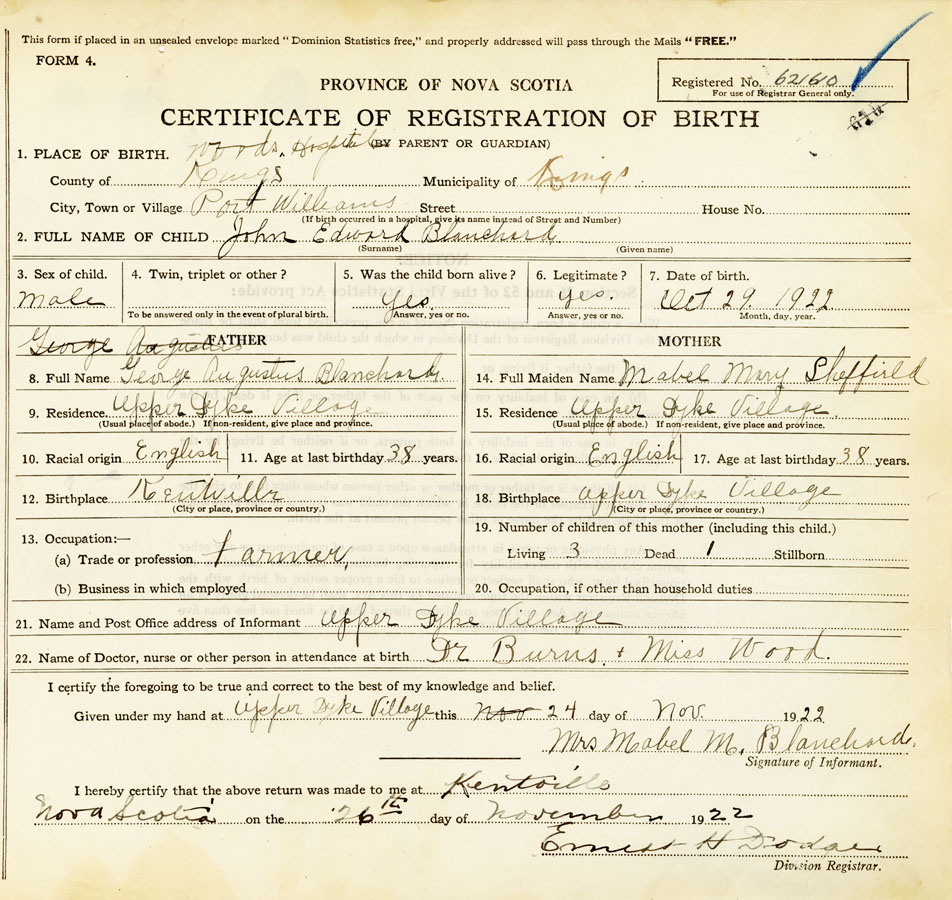 This form if placed in an unsealed envelope marked "Dominion Statistics free," and properly addressed will pass through the Mails "FREE."
FORM 4.
Registered No. 62160
For use of Registrar General only.
PROVINCE OF NOVA SCOTIA
CERTIFICATE OF REGISTRATION OF BIRTH
(BY PARENT OR GUARDIAN)
1. PLACE OF BIRTH. Woods Hospital
County of Kings Municipality of Kings
City, Town or Village Port Williams Street House No.
(If birth occurred in a hospital, give its name instead of Street and Number)
2. FULL NAME OF CHILD John Edward Blanchard
(Surname) (Given name)
3. Sex of child. 4. Twin, triplet or other? 5. Was the child born alive? 6. Legitimate? 7. Date of birth.
Male Yes. Yes. Oct 29. 1922
To be answered only in the event of plural birth. Answer, yes or no. Answer, yes or no. Month, day, year.
George Augustus
FATHER MOTHER
8. Full Name George Augustus Blanchard 14. Full Maiden Name Mabel Mary Sheffield
9. Residence Upper Dyke Village 15. Residence Upper Dyke Village.
(Usual place of abode.) If non-resident, give place and province. (Usual place of abode.) If non-resident, give place and province.
10. Racial origin English 11. Age at last birthday 38 years. 16. Racial origin English 17. Age at last birthday 38 years.
12. Birthplace Kentville 18. Birthplace Upper Dyke Village
(City or place, province or country.) (City or place, province or country.)
13. Occupation:— 19. Number of children of this mother (including this child.)
(a) Trade or profession Farmer, Living 3 Dead 1 Stillborn
(b) Business in which employed 20. Occupation, if other than household duties
21. Name and Post Office address of Informant Upper Dyke Village
22. Name of Doctor, nurse or other person in attendance at birth Dr Burns. + Miss Wood.
I certify the foregoing to be true and correct to the best of my knowledge and belief.
Given under my hand at Upper Dyke Village this Nov 24 day of Nov. 1922
Mrs Mabel M. Blanchard.
Signature of Informant.
I hereby certify that the above return was made to me at Kentville
Nova Scotia on the 26th day of November 1922
Ernest H Dodge
Division Registrar.